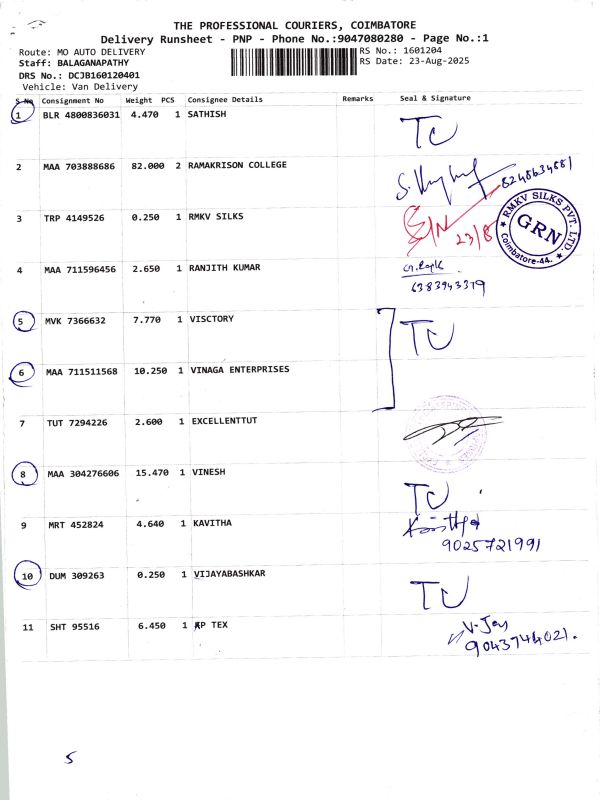 THE PROFESSIONAL COURIERS, COIMBATORE
Delivery Runsheet - PNP - Phone No.:9047080280 - Page No.:1
Route: MO AUTO DELIVERY RS No.: 1601204
Staff: BALAGANAPATHY RS Date: 23-Aug-2025
DRS No.: DCJB160120401
Vehicle: Van Delivery
S No Consignment No Weight PCS Consignee Details Remarks Seal & Signature
1 BLR 4800836031 4.470 1 SATHISH
TC
2 MAA 703888686 82.000 2 RAMAKRISON COLLEGE
8248634881
3 TRP 4149526 0.250 1 RMKV SILKS
23/8
RMKV SILKS PVT. LTD.
GRN
Coimbatore-44.
4 MAA 711596456 2.650 1 RANJITH KUMAR
6383943379
5 MVK 7366632 7.770 1 VISCTORY
TC
6 MAA 711511568 10.250 1 VINAGA ENTERPRISES
7 TUT 7294226 2.600 1 EXCELLENTTUT
8 MAA 304276606 15.470 1 VINESH
TC
9 MRT 452824 4.640 1 KAVITHA
9025721991
10 DUM 309263 0.250 1 VIJAYABASHKAR
TC
11 SHT 95516 6.450 1 AP TEX
V. Jey
9043744021.
5